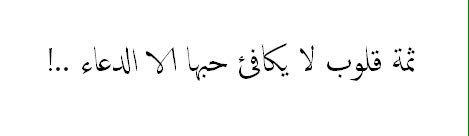 ثمة قلوب لا يكافئ حبها الا الدعاء ..!